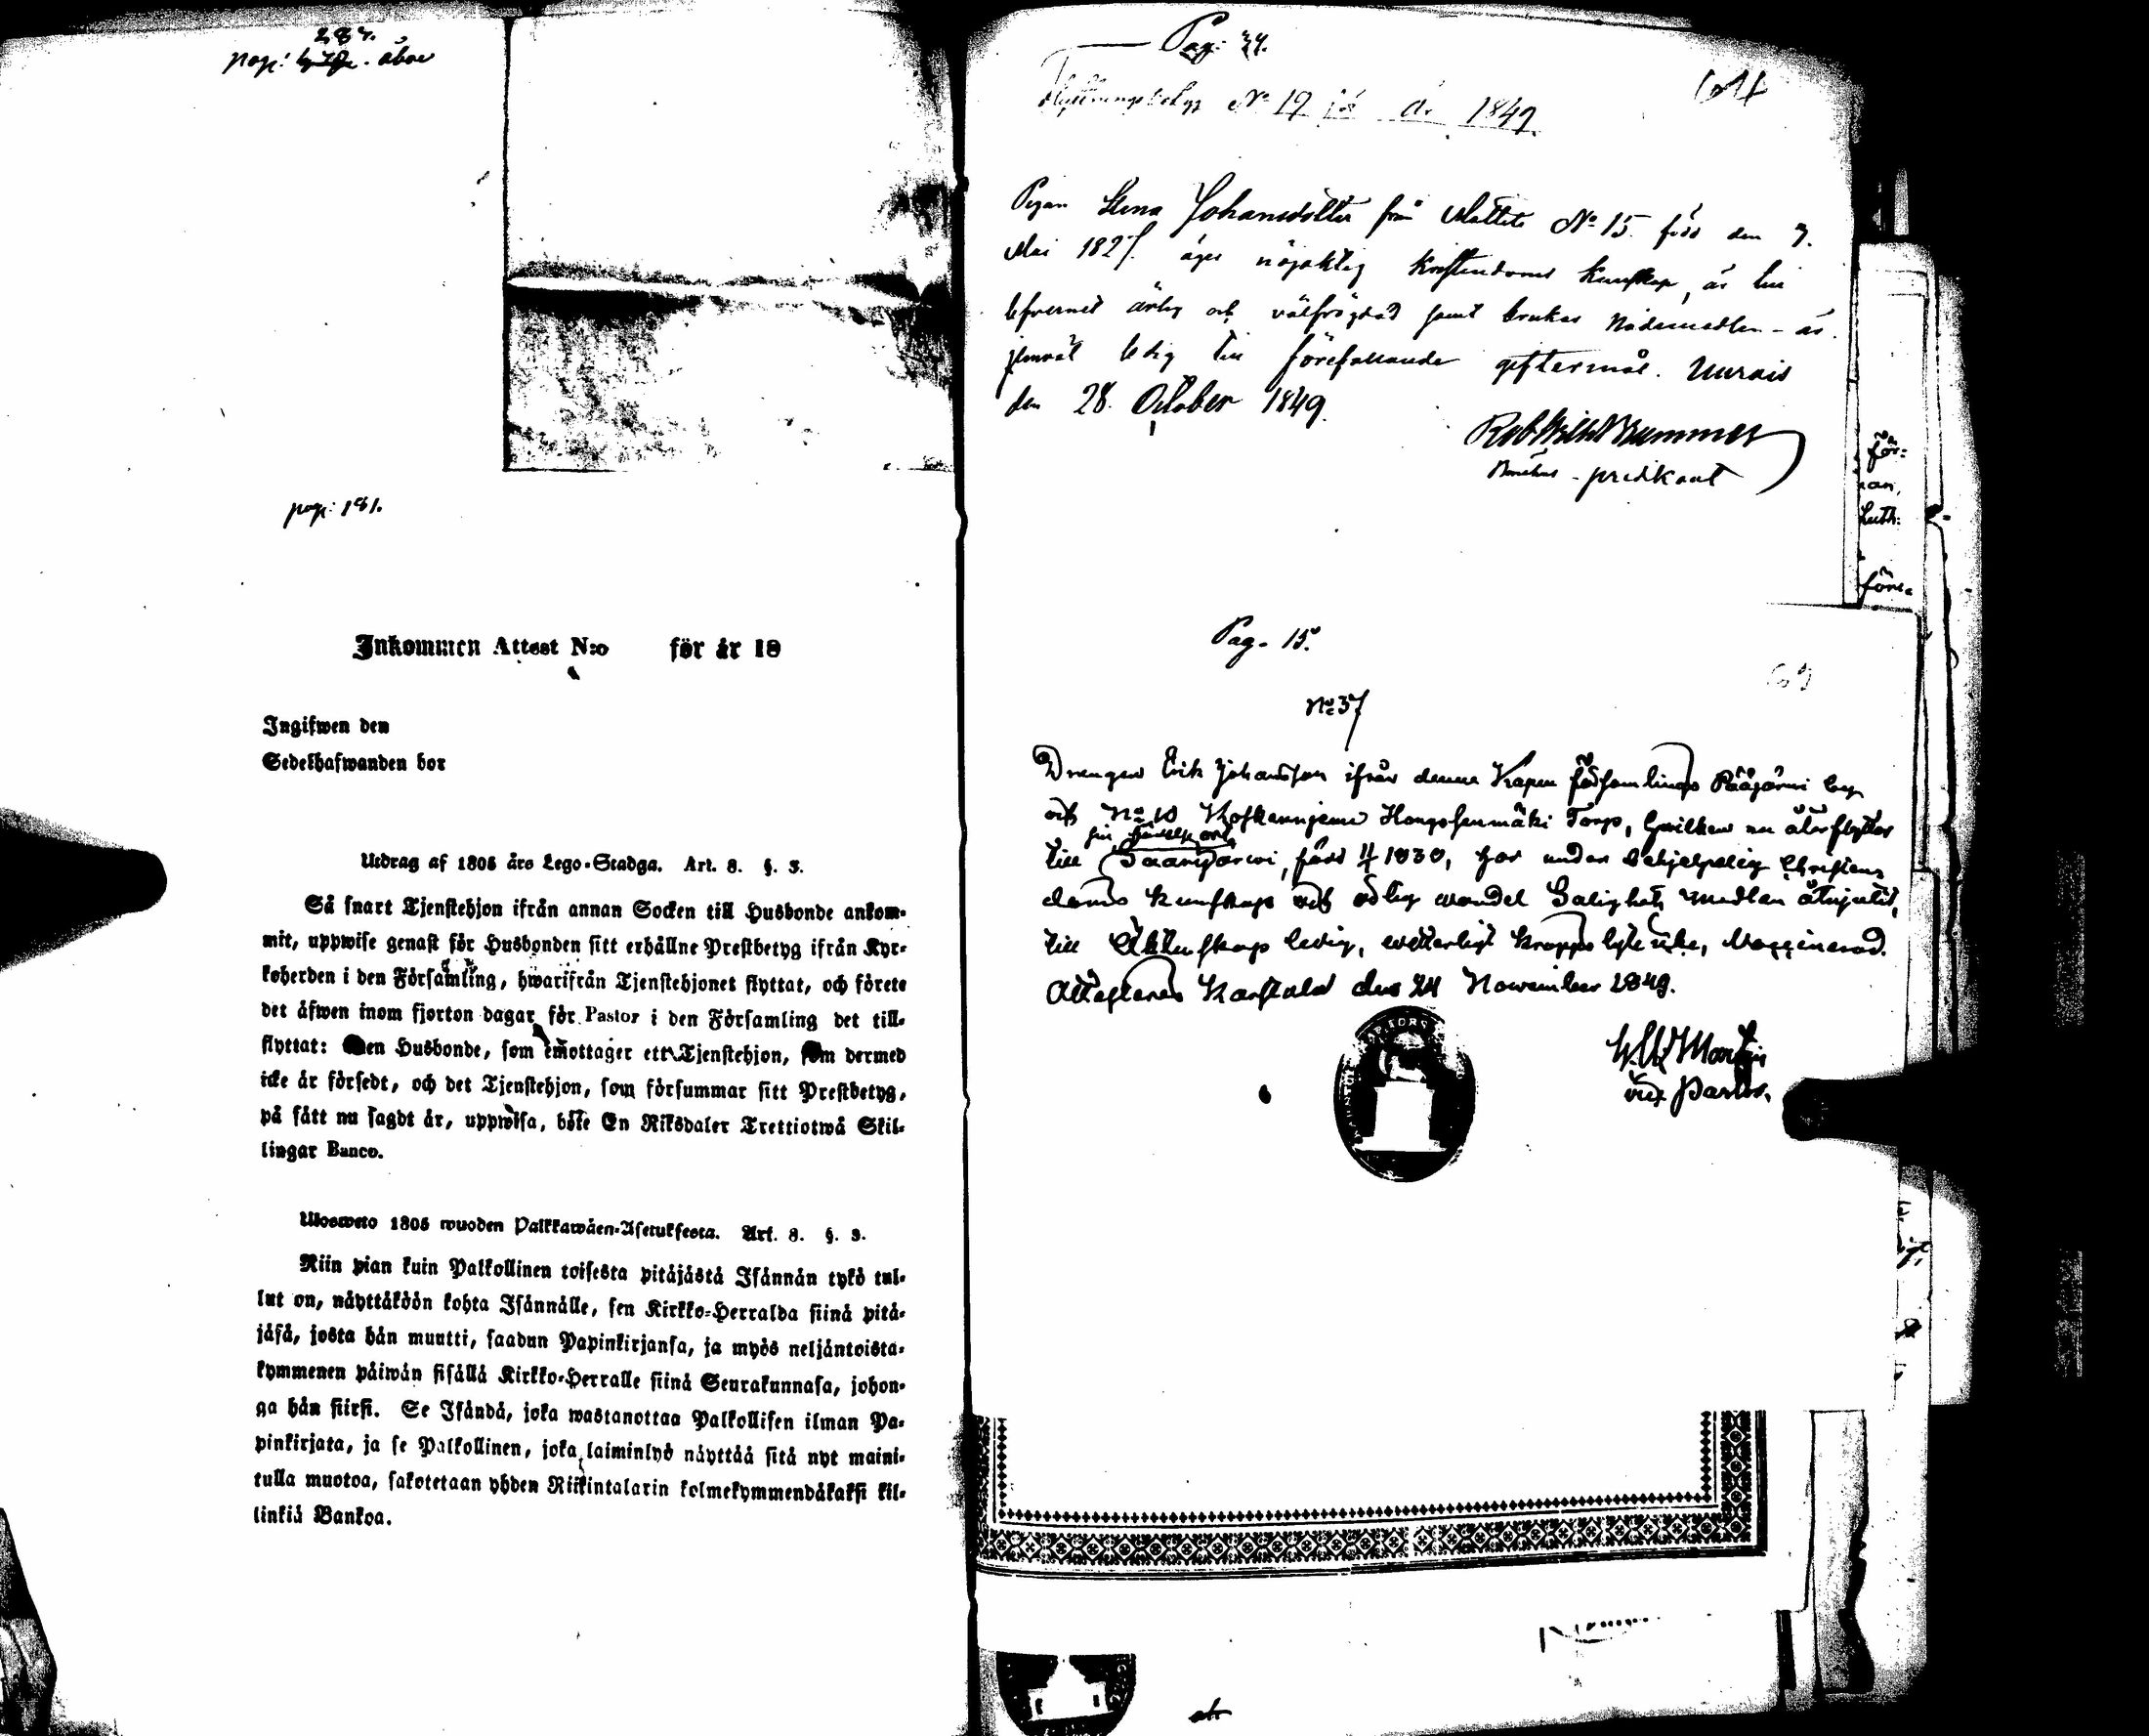 284.
pag: åboe
pag: 181.
Inkommen Attest N:o för år 18
Ingifwen den
Sedelhafwanden bor
Utdrag af 1805 års Lego-Stadga. Art. 8. §. 3.
Så snart Tjenstehjon ifrån annan Socken till Husbonde ankom-
mit, uppwise genast för Husbonden sitt erhållne Prestbetyg ifrån Kyr-
koherden i den Församling, hwarifrån Tjenstehjonet flyttat, och förete
det äfwen inom fjorton dagar för Pastor i den Församling det till-
flyttat: Den Husbonde, som emottager ett Tjenstehjon, som dermed
icke är försedt, och det Tjenstehjon, som försummar sitt Prestbetyg,
på sätt nu sagdt är, uppwisa, böte En Riksdaler Trettiotwå Skil-
lingar Banco.
Ulosweto 1805 wuoden Palkkawäen-Asetuksesta. Art. 8. §. 3.
Niin pian kuin Palkollinen toisesta pitäjästä Isännän tykö tul-
lut on, näyttäköön kohta Isännälle, sen Kirkko-Herralda siinä pitä-
jäsä, josta hän muutti, saadun Papinkirjansa, ja myös neljäntoista-
kymmenen päiwän sisällä Kirkko-Herralle siinä Seurakunnasa, johon-
ga hän siirsi. Se Isändä, joka wastanottaa Palkollisen ilman Pa-
pinkirjata, ja se Palkollinen, joka laiminlyö näyttää sitä nyt maini-
tulla muotoa, sakotetaan yhden Riikintalarin kolmekymmendäkaksi kil-
linkiä Bankoa.
Pag: 34.
Flyttningsbetyg No 19 för år 1849.
64
Pigan Stina Johansdotter från No 15. född den 7.
Mai 1827. äger nöjaktig kristendoms kunskap, är till
lefvernet ärlig och välfrägdad samt brukar nådemedlen - är
jemväl ledig till förefallande giftermål. Uurais
den 28. October 1849.
predikant
Pag. 15.
69
No 37
Drengen Erik Johansson ifrån denne Kapell församlings Pääjärvi by
och No 10 Torp, hwilken nu åter flyttar
till sin födelse ort Saarijärwi, född 11/4 1830, har under behjelpelig Christen-
doms kunskap och ärlig wandel Salighets medlen åtnjutit,
till Äktenskap ledig, wetterligt kropps lyte icke, Waccinerad.
Attesteras Karstula den 24 November 1849.
vice Pastor.
för-
Luth:
före-